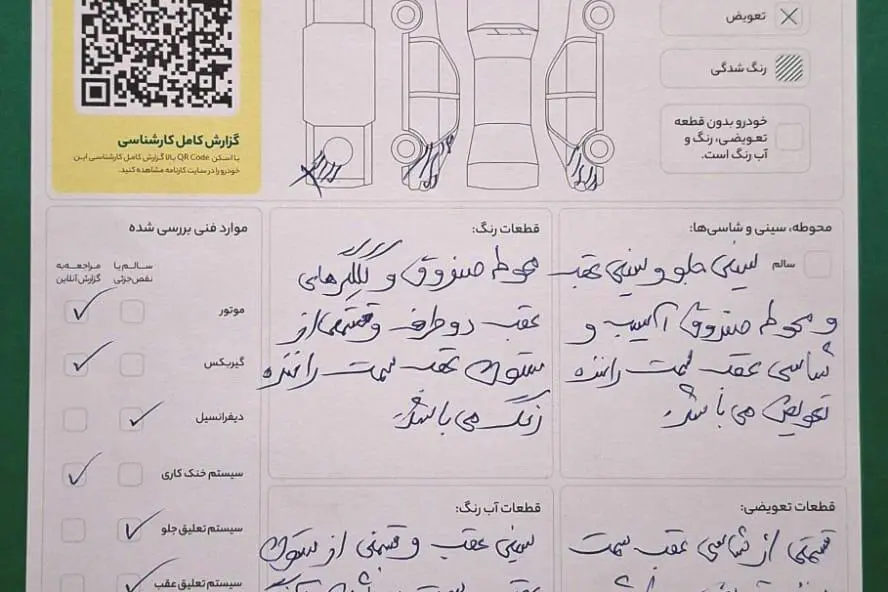 تعویض
رنگ شدگی
خودرو بدون قطعه
تعویضی، رنگ و
آب رنگ است.
گزارش کامل کارشناسی
با اسکن QR Code بالا گزارش کامل کارشناسی این
خودرو را در سایت کارنامه مشاهده کنید.
محوطه، سینی و شاسی‌ها:
سالم
سینی جلو و سینی عقب
و محوطه صندوق آسیب و
شاسی عقب سمت راننده
تعویض می باشد.
قطعات رنگ:
محوطه صندوق و گلگیرهای
عقب دو طرف و قسمتی از
ستون عقب سمت راننده
رنگ می باشد.
موارد فنی بررسی شده
سالم یا
نقص جزئی
مراجعه به
گزارش آنلاین
موتور
گیربکس
دیفرانسیل
سیستم خنک کاری
سیستم تعلیق جلو
سیستم تعلیق عقب
قطعات تعویضی:
قسمتی از شاسی عقب سمت
قطعات آب رنگ:
سینی عقب و قسمتی از ستون